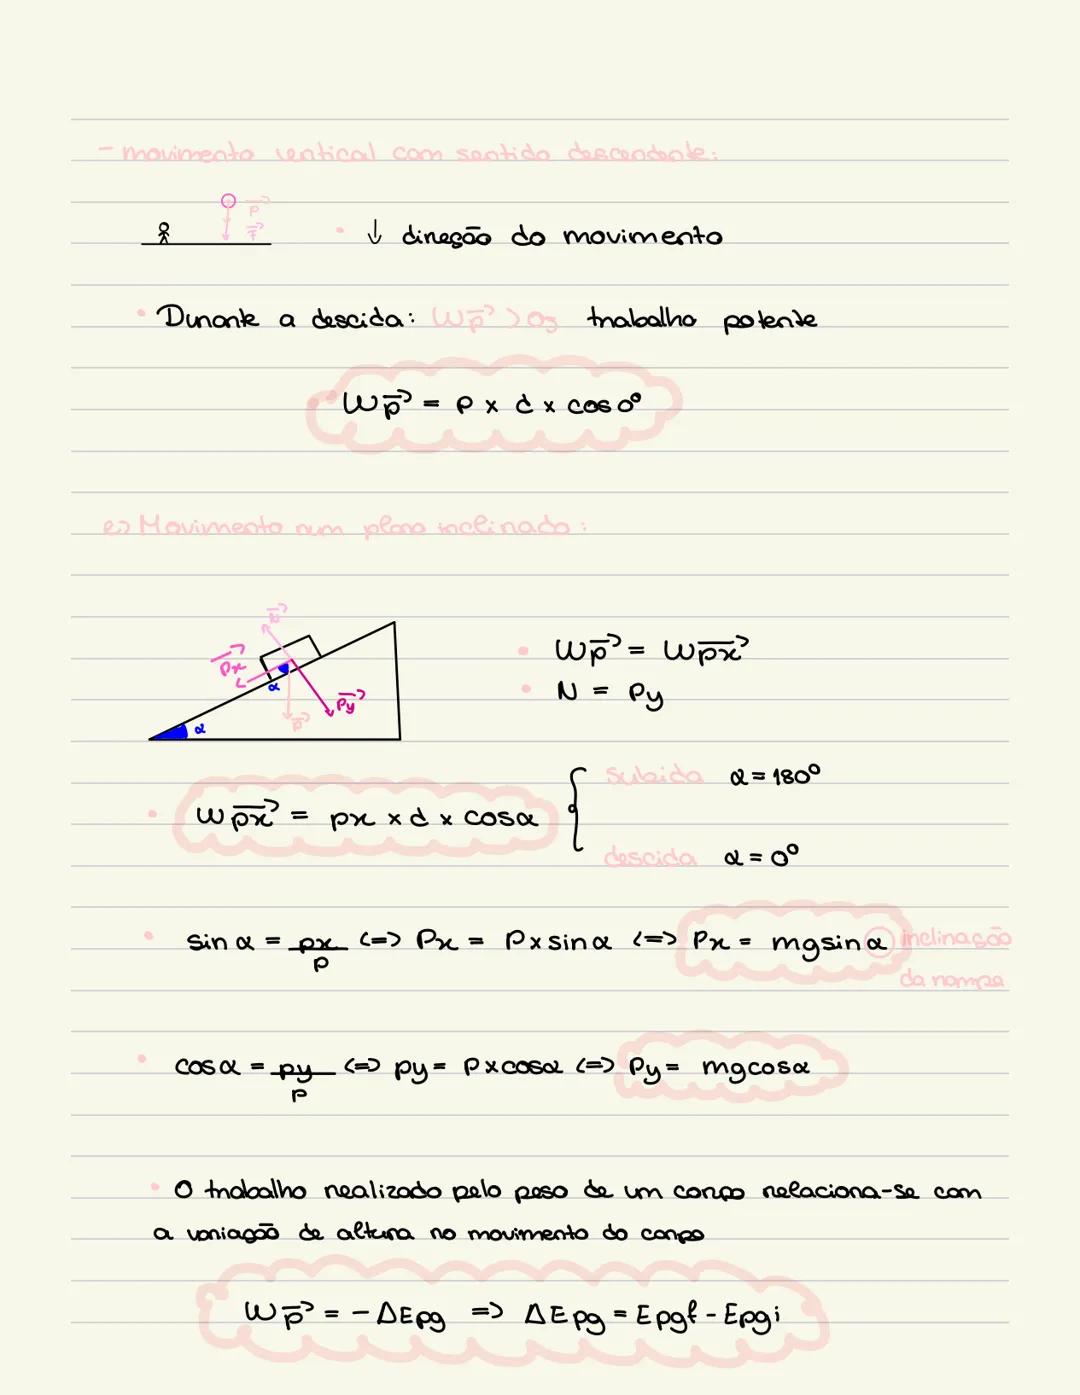 - movimento vertical com sentido descendente:
P
F
• ↓ direção do movimento
• Durante a descida: Wp > 0; trabalho potente
• Wp = P x d x cos 0°
e) Movimento num plano inclinado:
Px
Py
P
α
α
• Wp = Wpx
• N = Py
• Wpx = px x d x cosα { subida α = 180°
descida α = 0°
• sin α = px/p <=> Px = P x sin α <=> Px = mg sin α inclinação
da rampa
• cos α = py/p <=> py = P x cosα <=> Py = mg cosα
• O trabalho realizado pelo peso de um corpo relaciona-se com
a variação de altura no movimento do corpo
Wp = - ΔEpg => ΔEpg = Epgf - Epgi